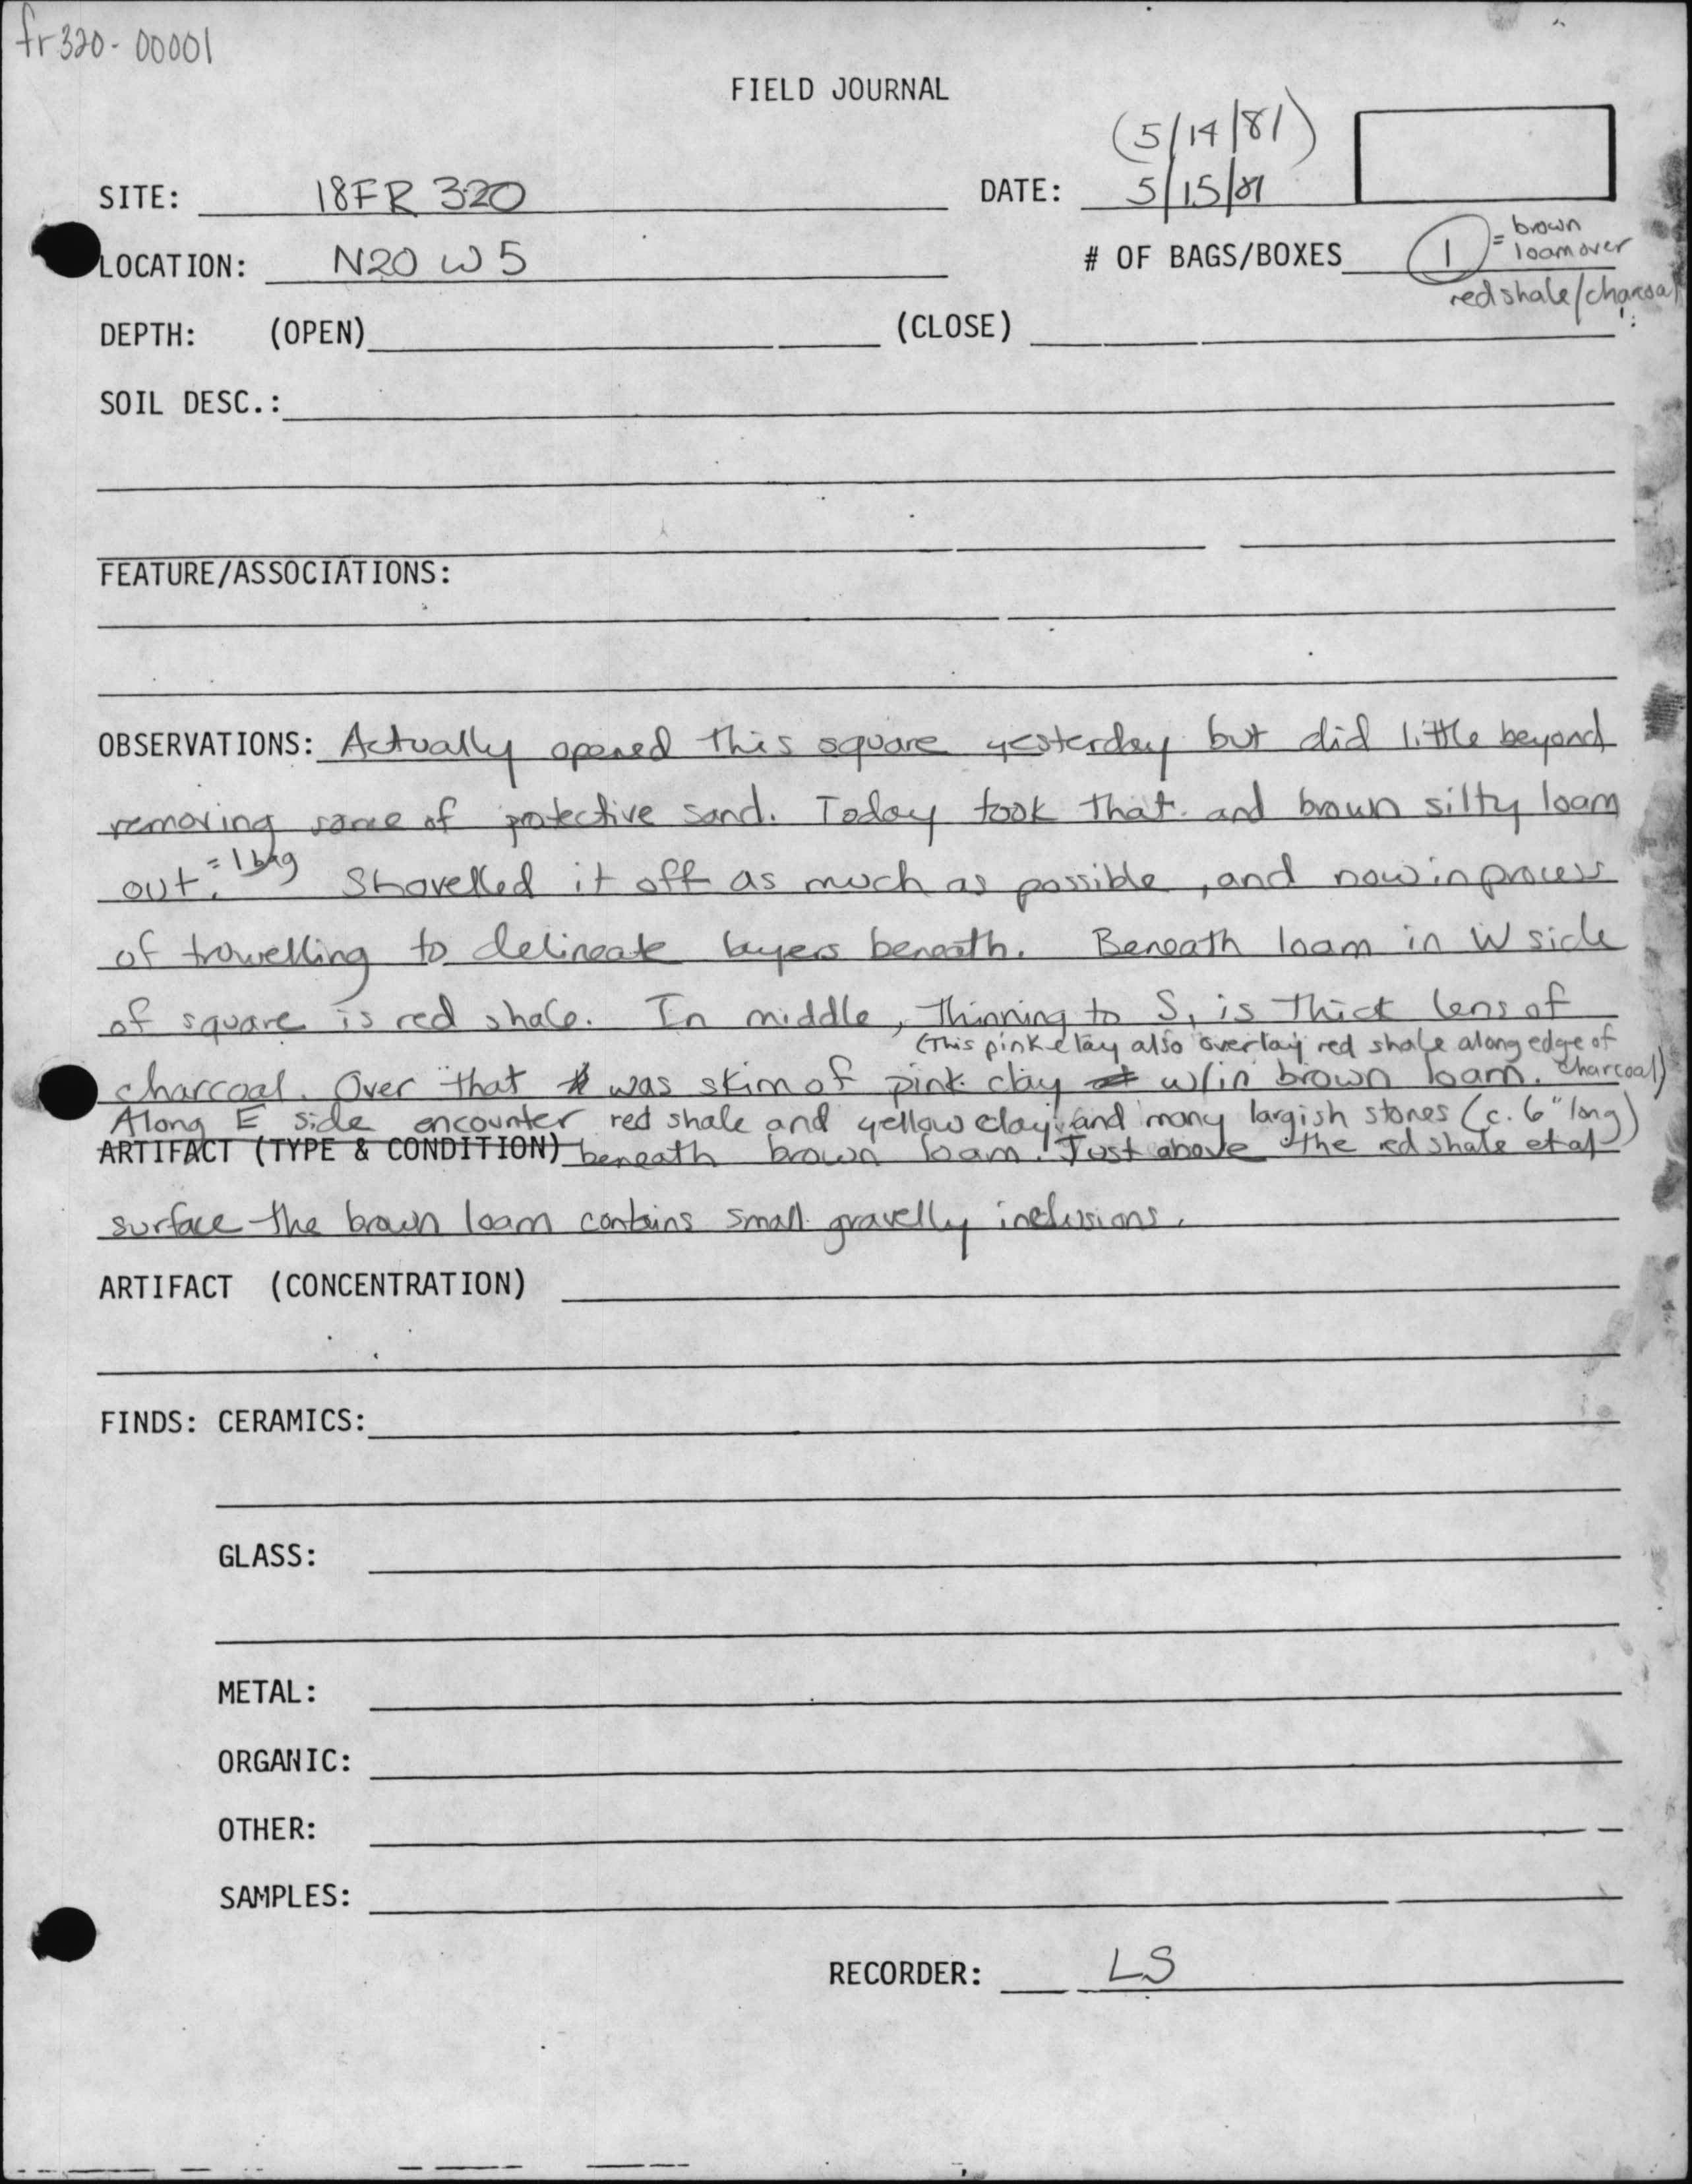 fr320-00001
FIELD JOURNAL
(5/14/81)
SITE: 18FR 320 DATE: 5/15/81
LOCATION: N20 W5 # OF BAGS/BOXES 1 = brown
loam over
red shale/charcoal
DEPTH: (OPEN) (CLOSE)
SOIL DESC.:
FEATURE/ASSOCIATIONS:
OBSERVATIONS: Actually opened this square yesterday but did little beyond
removing some of protective sand. Today took that and brown silty loam
out. = 1 bag Shovelled it off as much as possible, and now in process
of trowelling to delineate layers beneath. Beneath loam in W side
of square is red shale. In middle, thinning to S, is thick lens of
(This pink clay also overlay red shale along edge of
charcoal. Over that was skim of pink clay w/in brown loam. charcoal)
Along E side encounter red shale and yellow clay and many largish stones (c. 6" long)
ARTIFACT (TYPE & CONDITION) beneath brown loam. Just above the red shale et al
surface the brown loam contains small gravelly inclusions.
ARTIFACT (CONCENTRATION)
FINDS: CERAMICS:
GLASS:
METAL:
ORGANIC:
OTHER:
SAMPLES:
RECORDER: LS